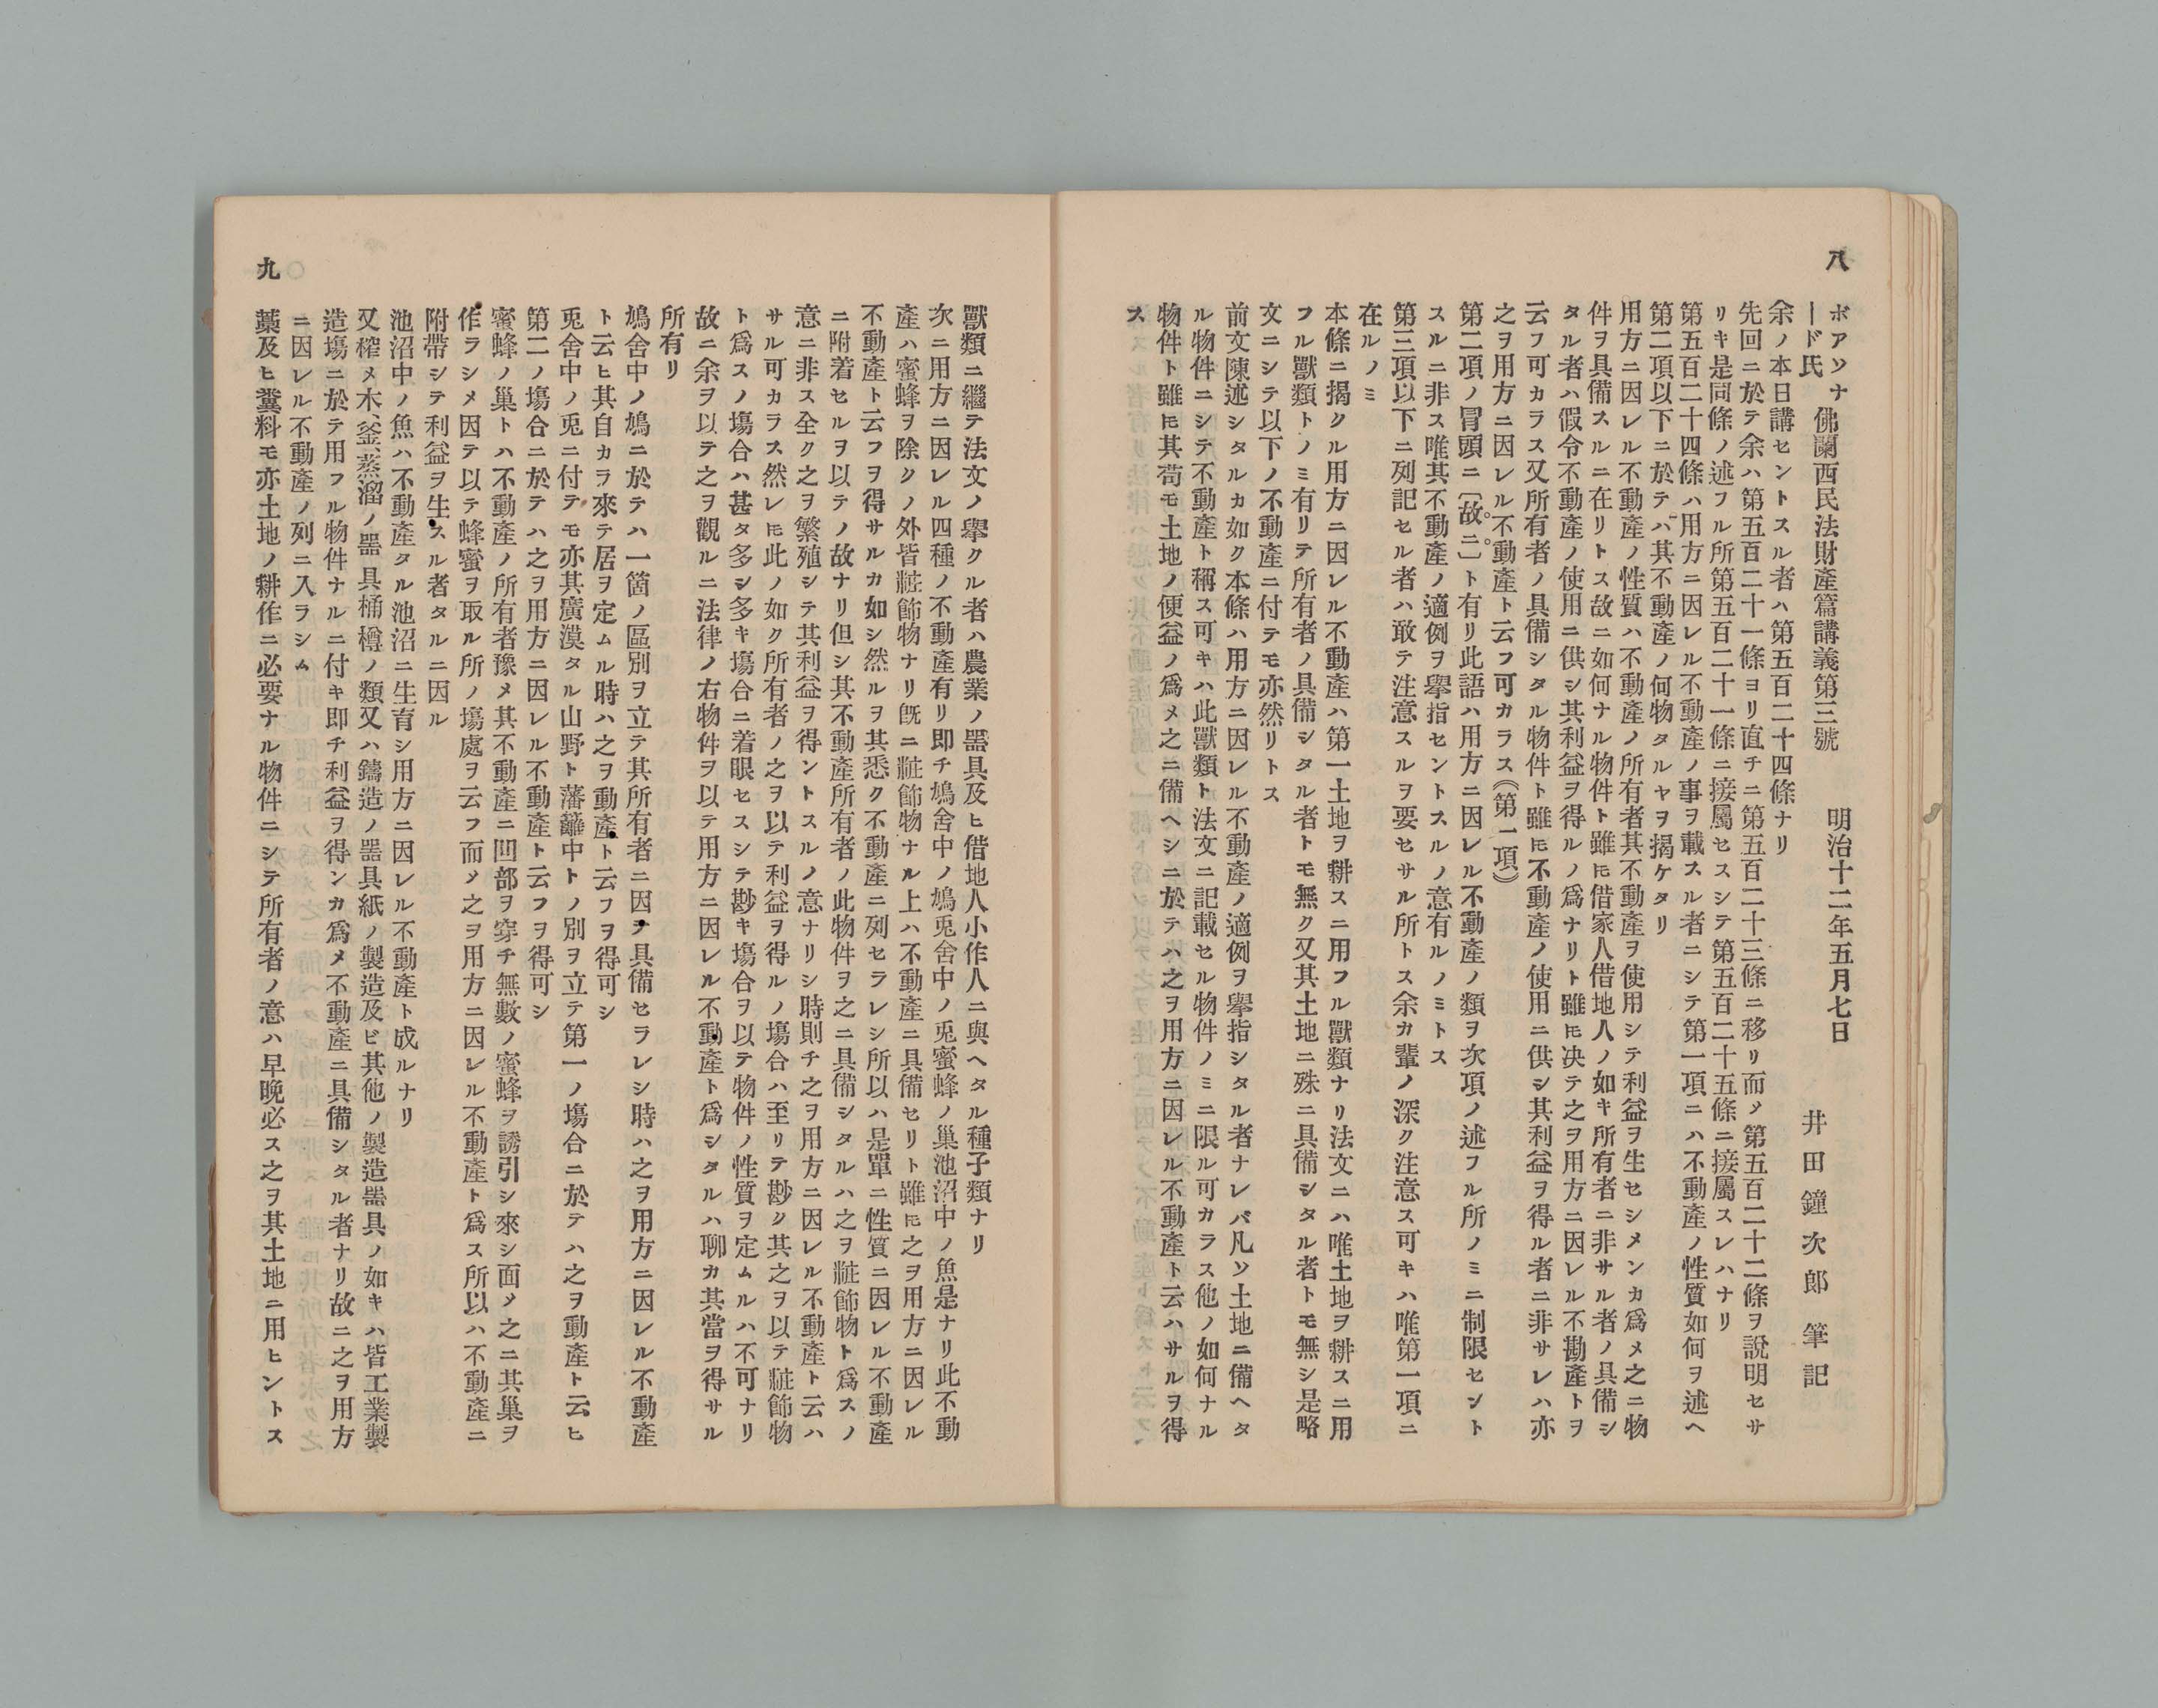 八
ボアソナード氏 佛蘭西民法財產篇講義第三號 明治十二年五月七日 井田鐘次郎筆記
余ノ本日講セントスル者ハ第五百二十四條ナリ
先回ニ於テ余ハ第五百二十一條ヨリ直チニ第五百二十三條ニ移リ而〆第五百二十二條ヲ說明セサ
リキ是同條ノ述フル所第五百二十一條ニ接屬セスシテ第五百二十五條ニ接屬スレハナリ
第五百二十四條ハ用方ニ因レル不動產ノ事ヲ載スル者ニシテ第一項ニハ不動產ノ性質如何ヲ述ヘ
第二項以下ニ於テハ其不動產ノ何物タルヤヲ揭ケタリ
用方ニ因レル不動產ノ性質ハ不動產ノ所有者其不動產ヲ使用シテ利益ヲ生セシメンカ爲メ之ニ物
件ヲ具備スルニ在リトス故ニ如何ナル物件ト雖𪜈借家人借地人ノ如キ所有者ニ非サル者ノ具備シ
タル者ハ假令不動產ノ使用ニ供シ其利益ヲ得ルノ爲ナリト雖𪜈决テ之ヲ用方ニ因レル不勘產トヲ
云フ可カラス又所有者ノ具備シタル物件ト雖𪜈不動產ノ使用ニ供シ其利益ヲ得ル者ニ非サレハ亦
之ヲ用方ニ因レル不動產ト云フ可カラス(第一項)
第二項ノ冒頭ニ〔故ニ〕ト有リ此語ハ用方ニ因レル不動產ノ類ヲ次項ノ述フル所ノミニ制限セント
スルニ非ス唯其不動產ノ適例ヲ擧指セントスルノ意有ルノミトス
第三項以下ニ列記セル者ハ敢テ注意スルヲ要セサル所トス余カ輩ノ深ク注意ス可キハ唯第一項ニ
在ルノミ
本條ニ揭クル用方ニ因レル不動產ハ第一土地ヲ耕スニ用フル獸類ナリ法文ニハ唯土地ヲ耕スニ用
フル獸類トノミ有リテ所有者ノ具備シタル者トモ無ク又其土地ニ殊ニ具備シタル者トモ無シ是略
文ニシテ以下ノ不動產ニ付テモ亦然リトス
前文陳述シタルカ如ク本條ハ用方ニ因レル不動產ノ適例ヲ擧指シタル者ナレバ凡ソ土地ニ備ヘタ
ル物件ニシテ不動產ト稱ス可キハ此獸類ト法文ニ記載セル物件ノミニ限ル可カラス他ノ如何ナル
物件ト雖𪜈其苟モ土地ノ便益ノ爲メ之ニ備ヘシニ於テハ之ヲ用方ニ因レル不動產ト云ハサルヲ得
ス
獸類ニ繼テ法文ノ擧クル者ハ農業ノ器具及ヒ借地人小作人ニ與ヘタル種子類ナリ
次ニ用方ニ因レル四種ノ不動產有リ即チ鳩舍中ノ鳩兎舍中ノ兎蜜蜂ノ巢池沼中ノ魚是ナリ此不動
產ハ蜜蜂ヲ除クノ外皆粧飾物ナリ旣ニ粧飾物ナル上ハ不動產ニ具備セリト雖𪜈之ヲ用方ニ因レル
不動產ト云フヲ得サルカ如シ然ルヲ其悉ク不動產ニ列セラレシ所以ハ是單ニ性質ニ因レル不動產
ニ附着セルヲ以テノ故ナリ但シ其不動產所有者ノ此物件ヲ之ニ具備シタルハ之ヲ粧飾物ト爲スノ
意ニ非ス全ク之ヲ繁殖シテ其利益ヲ得ントスルノ意ナリシ時則チ之ヲ用方ニ因レル不動產ト云ハ
サル可カラス然レ𪜈此ノ如ク所有者ノ之ヲ以テ利益ヲ得ルノ塲合ハ至リテ尠ク其之ヲ以テ粧飾物
ト爲スノ塲合ハ甚タ多シ多キ塲合ニ着眼セスシテ尠キ塲合ヲ以テ物件ノ性質ヲ定ムルハ不可ナリ
故ニ余ヲ以テ之ヲ觀ルニ法律ノ右物件ヲ以テ用方ニ因レル不動產ト爲シタルハ聊カ其當ヲ得サル
所有リ
鳩舍中ノ鳩ニ於テハ一箇ノ區別ヲ立テ其所有者ニ因テ具備セラレシ時ハ之ヲ用方ニ因レル不動產
ト云ヒ其自カラ來テ居ヲ定ムル時ハ之ヲ動產ト云フヲ得可シ
兎舍中ノ兎ニ付テモ亦其廣漠タル山野ト藩籬中トノ別ヲ立テ第一ノ塲合ニ於テハ之ヲ動產ト云ヒ
第二ノ塲合ニ於テハ之ヲ用方ニ因レル不動產ト云フヲ得可シ
蜜蜂ノ巢トハ不動產ノ所有者豫メ其不動產ニ凹部ヲ穿チ無數ノ蜜蜂ヲ誘引シ來シ面〆之ニ其巢ヲ
作ラシメ因テ以テ蜂蜜ヲ取ル所ノ塲處ヲ云フ而〆之ヲ用方ニ因レル不動產ト爲ス所以ハ不動產ニ
附帶シテ利益ヲ生スル者タルニ因ル
池沼中ノ魚ハ不動產タル池沼ニ生育シ用方ニ因レル不動產ト成ルナリ
又榨メ木、釜、蒸溜ノ器具桶樽ノ類又ハ鑄造ノ器具紙ノ製造及ビ其他ノ製造器具ノ如キハ皆工業製
造塲ニ於テ用フル物件ナルニ付キ即チ利益ヲ得ンカ爲メ不動產ニ具備シタル者ナリ故ニ之ヲ用方
ニ因レル不動產ノ列ニ入ラシム
藁及ヒ糞料モ亦土地ノ耕作ニ必要ナル物件ニシテ所有者ノ意ハ早晩必ス之ヲ其土地ニ用ヒントス
九